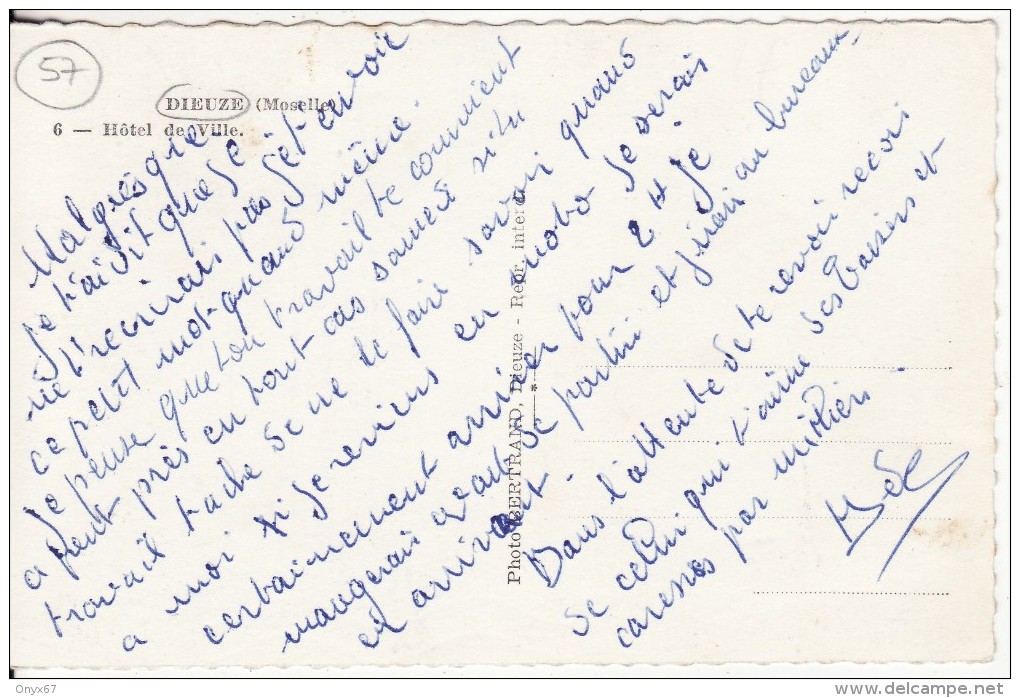 57
DIEUZE (Moselle)
6 — Hôtel de Ville.
Malgrès que
je t'ai dit que je
ne t'recrirais pas je t'envoie
ce petit mot quand même
Je pense que ton travail te convient
a peut près en tout cas samedi si tu
travail tache de me le faire savoir quand
a moi si je reviens en mobo je serais
certainement arriver pour 2 H je
mangerais avant de partir et j'irai au bureau
en arrivant.
Dans l'attente de te revoir recois
de celui qui t'aime des baisers et
caresses par milliers
Photo BERTRAND, Dieuze - Repr. interdite
Onyx67
www.delcampe.net